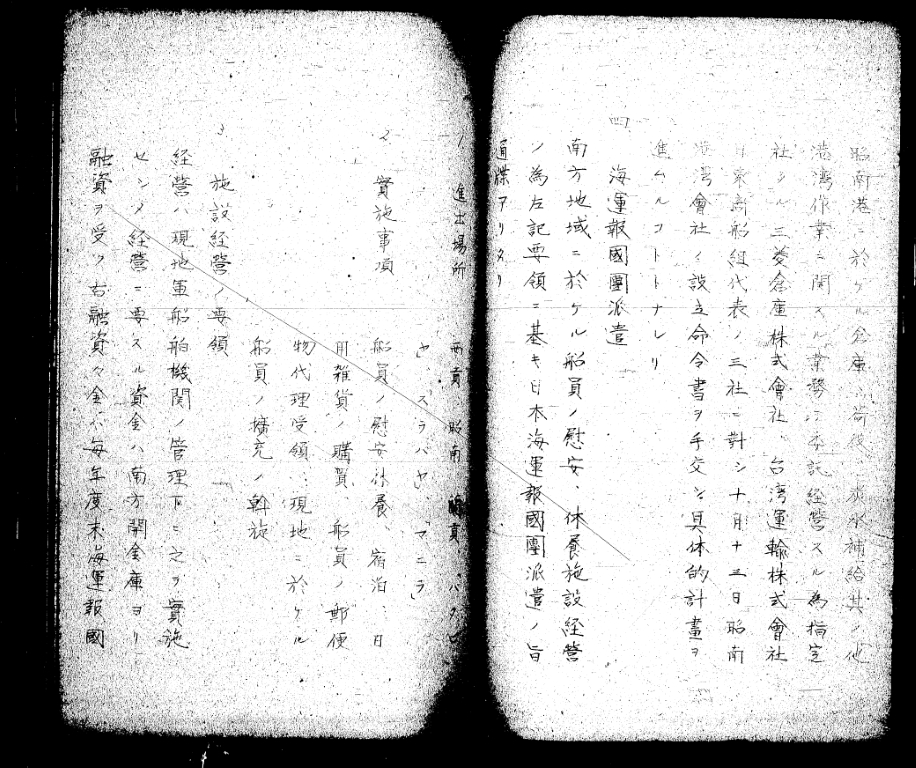 昭南港ニ於ケル倉庫、荷役、炭水補給其ノ他
港湾作業ニ関スル業務ニ委託経営スル為指定
社シル三菱倉庫株式會社、台湾運輸株式會社
東商船組代表ノ三社ニ對シ十月十三日昭南
港湾會社ノ設立命令書ヲ手交シ具体的計畫ヲ
進ムルコトトナレリ
四
海運報國團派遣
南方地域ニ於ケル船員ノ慰安、休養施設経営
ノ為左記要領ニ基キ日本海運報國團派遣ノ旨
通牒アリタリ
1 進出場所 西貢、昭南
ヤ、スラバヤ、「マニラ」
2 實施事項 船員ノ慰安休養 宿泊、日
用雑貨ノ購買 船員ノ郵便
物代理受領、現地ニ於ケル
船員ノ擴充ノ斡旋
3 施設経営ノ要領
経営ハ現地軍船舶機関ノ管理下ニ之ヲ實施
セシメ経営ニ要スル資金ハ南方開金庫ヨリ
融資ヲ受ケ右融資々金ハ毎年度末海運報國